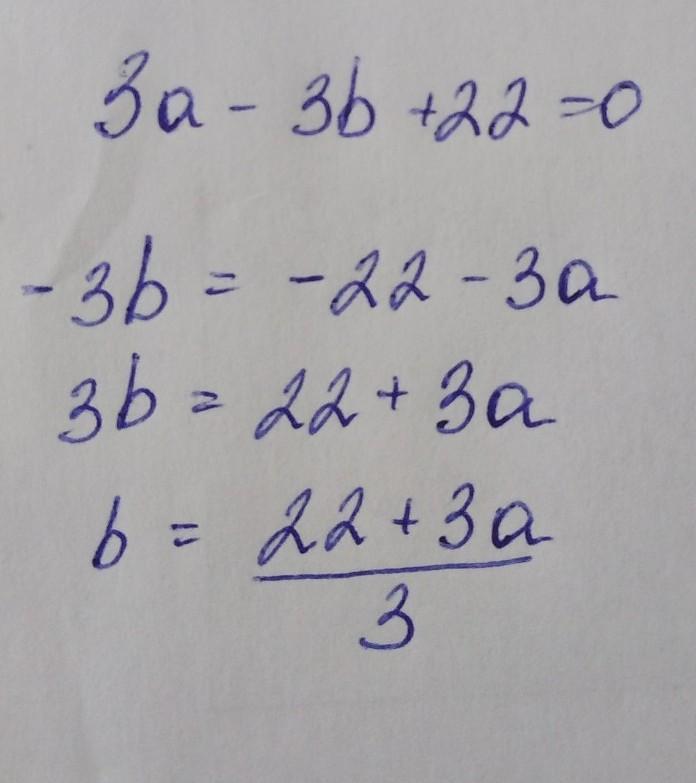 3a - 3b + 22 = 0
-3b = -22 - 3a
3b = 22 + 3a
b = \frac{22 + 3a}{3}